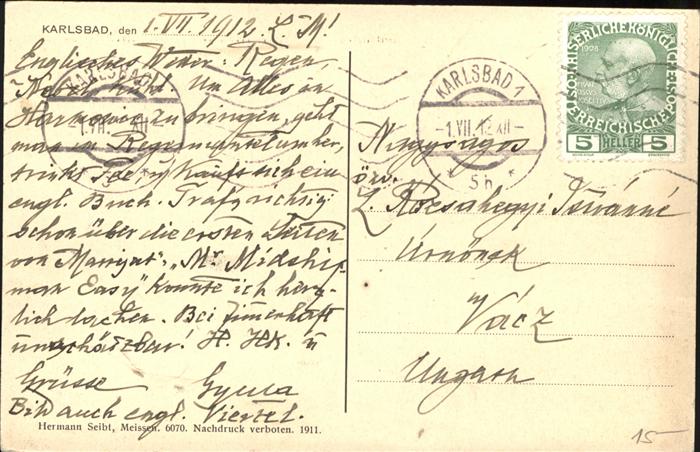 KARLSBAD, den 1. VII. 1912. L. M!
Englisches Wetter: Regen,
Nebel, kühl. Um Alles in
Harmonie zu bringen, geht
man in Regenmantel umher,
trinkt Tee, kauft sich ein
engl. Buch. Traf richtig
schon über die ersten Seiten
von Marryat's „Mr. Midship-
man Easy" konnte ich herz-
lich lachen. Bei Zimmerhaft
unschätzbar! H. HK. u
Grüsse Gyula
Bin auch engl. Viertel.
Hermann Seibt, Meissen. 6070. Nachdruck verboten. 1911.
KARLSBAD
KARLSBAD 1
-1.VII.12.XII-
5h *
KAISERLICHE KÖNIGLICHE
ÖSTERREICHISCHE POST
1908
5 HELLER 5
Nagyságos
özv.
L. Rózsahegyi Istvánné
Úrnőnek
Vácz
Ungarn
15-